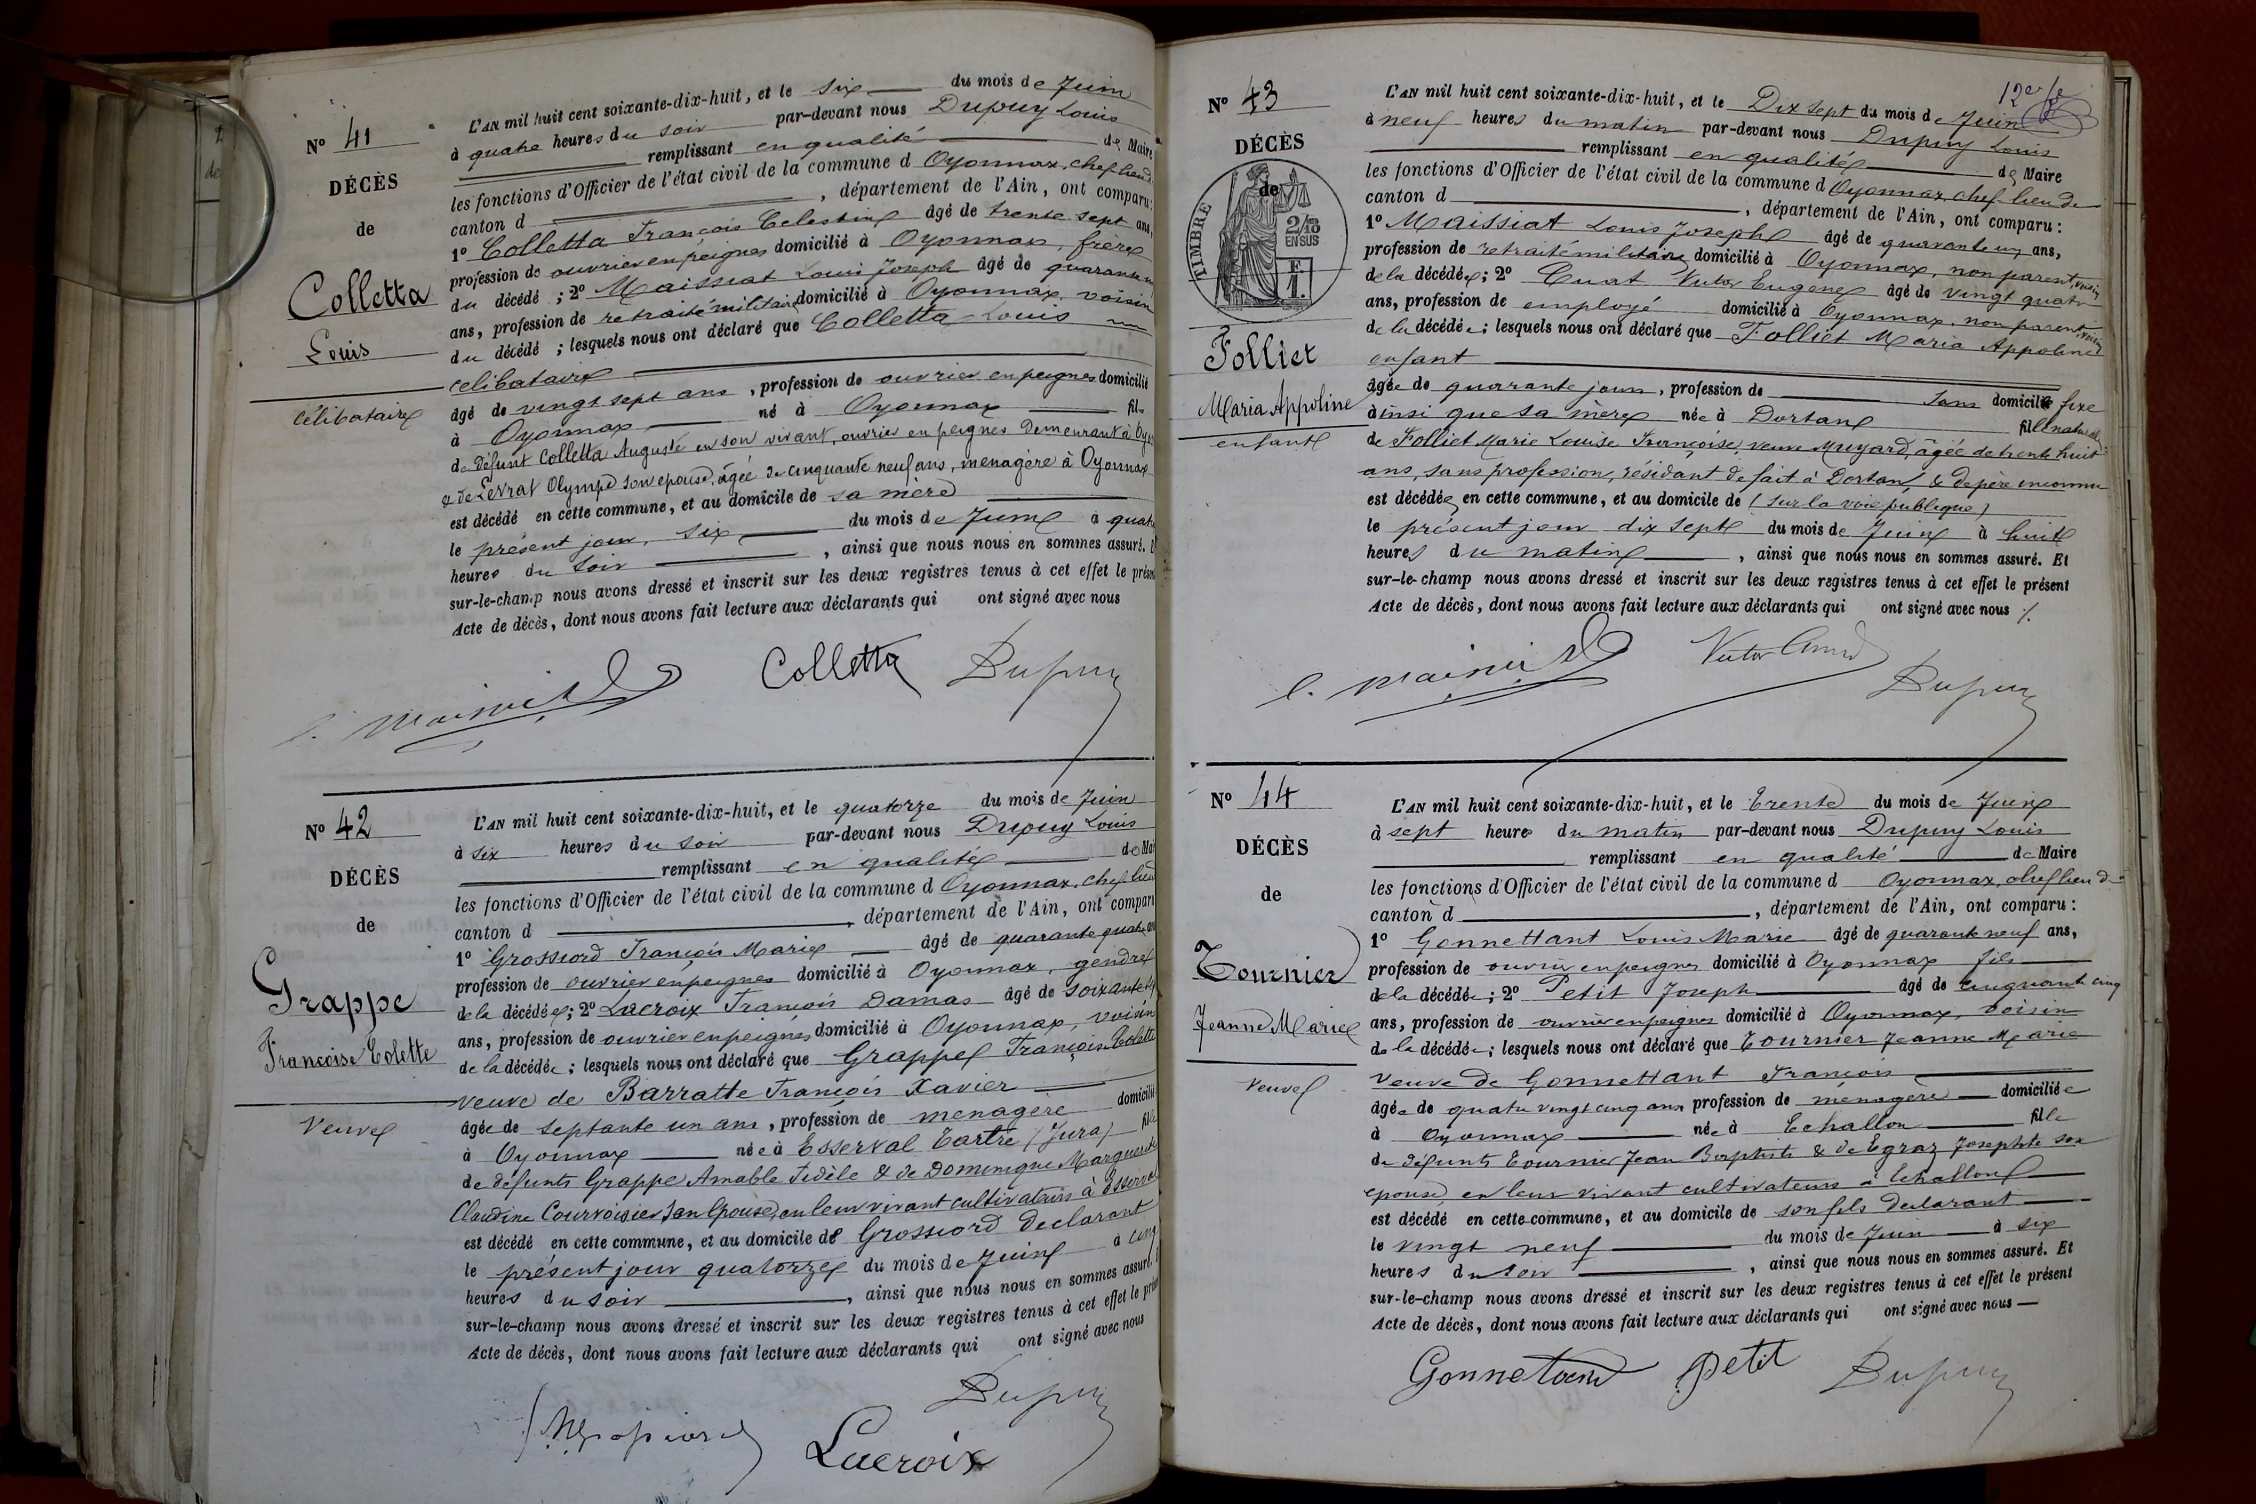 N° 41
DÉCÈS
de
Colletta
Louis
célibataire
L'AN mil huit cent soixante-dix-huit, et le six du mois de Juin
à quatre heures du soir par-devant nous Dupuy Louis
remplissant en qualité de Maire
les fonctions d'Officier de l'état civil de la commune d Oyonnax, chef lieu de
canton d , département de l'Ain, ont comparu:
1° Colletta François Celestin âgé de trente sept ans,
profession de ouvrier en peignes domicilié à Oyonnax, frère
du décédé ; 2° Maissiat Louis Joseph âgé de quarante un
ans, profession de retraité militaire domicilié à Oyonnax voisin
du décédé ; lesquels nous ont déclaré que Colletta Louis
celibataire
âgé de vingt sept ans , profession de ouvrier en peignes domicilié
à Oyonnax né à Oyonnax fils
de défunt Colletta Auguste en son vivant, ouvrier en peignes demeurant à Oyo
& de Levrat Olympe son épouse, âgée de cinquante neuf ans, menagère à Oyonnax
est décédé en cette commune, et au domicile de sa mère
le présent jour, six du mois de Juin à quatre
heures du soir , ainsi que nous nous en sommes assuré. E
sur-le-champ nous avons dressé et inscrit sur les deux registres tenus à cet effet le présen
Acte de décès, dont nous avons fait lecture aux déclarants qui ont signé avec nous
Colletta Dupuy
N° 42
DÉCÈS
de
Grappe
Françoise Colette
Veuve
L'AN mil huit cent soixante-dix-huit, et le quatorze du mois de Juin
à six heures du soir par-devant nous Dupuy Louis
remplissant en qualité de Mai
les fonctions d'Officier de l'état civil de la commune d Oyonnax, chef lieu
canton d , département de l'Ain, ont comparu
1° Grossiord François Marie âgé de quarante quatre ans
profession de ouvrier en peignes domicilié à Oyonnax, gendre
de la décédée; 2° Lacroix François Damas âgé de soixante
ans, profession de ouvrier en peignes domicilié à Oyonnax, voisin
de la décédée ; lesquels nous ont déclaré que Grappe Françoise Colette
veuve de Barratte François Xavier
âgée de septante un ans , profession de menagère domicilié
à Oyonnax née à Esserval Tartre (Jura) fille
de défunts Grappe Amable Fidèle & de Dominique Marguerite
Claudine Courvoisier son épouse, en leur vivant cultivateurs à Esserval
est décédé en cette commune, et au domicile de Grossiord declarant
le présent jour quatorze du mois de Juin à cinq
heures du soir , ainsi que nous nous en sommes assuré.
sur-le-champ nous avons dressé et inscrit sur les deux registres tenus à cet effet le présen
Acte de décès, dont nous avons fait lecture aux déclarants qui ont signé avec nous
Dupuy
Lacroix
N° 43
DÉCÈS
de
TIMBRE
2/10
EN SUS
F.
1.
Folliet
Maria Appoline
enfant
L'AN mil huit cent soixante-dix-huit, et le Dix sept du mois de Juin
à neuf heures du matin par-devant nous Dupuy Louis
remplissant en qualité de Maire
les fonctions d'Officier de l'état civil de la commune d Oyonnax chef lieu de
canton d , département de l'Ain, ont comparu:
1° Maissiat Louis Joseph âgé de quarante un ans,
profession de retraité militaire domicilié à Oyonnax, non parent, voisin
de la décédée; 2° Cuat Victor Eugene âgé de vingt quatre
ans, profession de employé domicilié à Oyonnax, non parent, voisin
de la décédée; lesquels nous ont déclaré que Folliet Maria Appoline
enfant
âgée de quarante jours, profession de Sans domicile fixe
ainsi que sa mère née à Dortan fille naturelle
de Folliet Marie Louise Françoise, veuve Muyard, âgée de trente huit
ans, sans profession, résidant de fait à Dortan, & de père inconnu
est décédée en cette commune, et au domicile de (sur la voie publique)
le présent jour dix sept du mois de Juin à huit
heures du matin , ainsi que nous nous en sommes assuré. Et
sur-le-champ nous avons dressé et inscrit sur les deux registres tenus à cet effet le présent
Acte de décès, dont nous avons fait lecture aux déclarants qui ont signé avec nous
Victor Dupuy
N° 44
DÉCÈS
de
Tournier
Jeanne Marie
Veuve
L'AN mil huit cent soixante-dix-huit, et le Trente du mois de Juin
à sept heures du matin par-devant nous Dupuy Louis
remplissant en qualité de Maire
les fonctions d'Officier de l'état civil de la commune d Oyonnax, chef lieu de
canton d , département de l'Ain, ont comparu:
1° Gonnettant Louis Marie âgé de quarante neuf ans,
profession de ouvrier en peignes domicilié à Oyonnax fils
de la décédée; 2° Petit Joseph âgé de cinquante cinq
ans, profession de ouvrier en peignes domicilié à Oyonnax, voisin
de la décédée; lesquels nous ont déclaré que Tournier Jeanne Marie
veuve de Gonnettant François
âgée de quatre vingt cinq ans profession de ménagère domiciliée
à Oyonnax née à Echallon fille
de défunts Tournier Jean Baptiste & de Egraz Josephte son
épouse, en leur vivant cultivateurs à Echallon
est décédé en cette commune, et au domicile de son fils declarant
le vingt neuf du mois de Juin à six
heures du soir , ainsi que nous nous en sommes assuré. Et
sur-le-champ nous avons dressé et inscrit sur les deux registres tenus à cet effet le présent
Acte de décès, dont nous avons fait lecture aux déclarants qui ont signé avec nous
Gonnetand Petit Dupuy